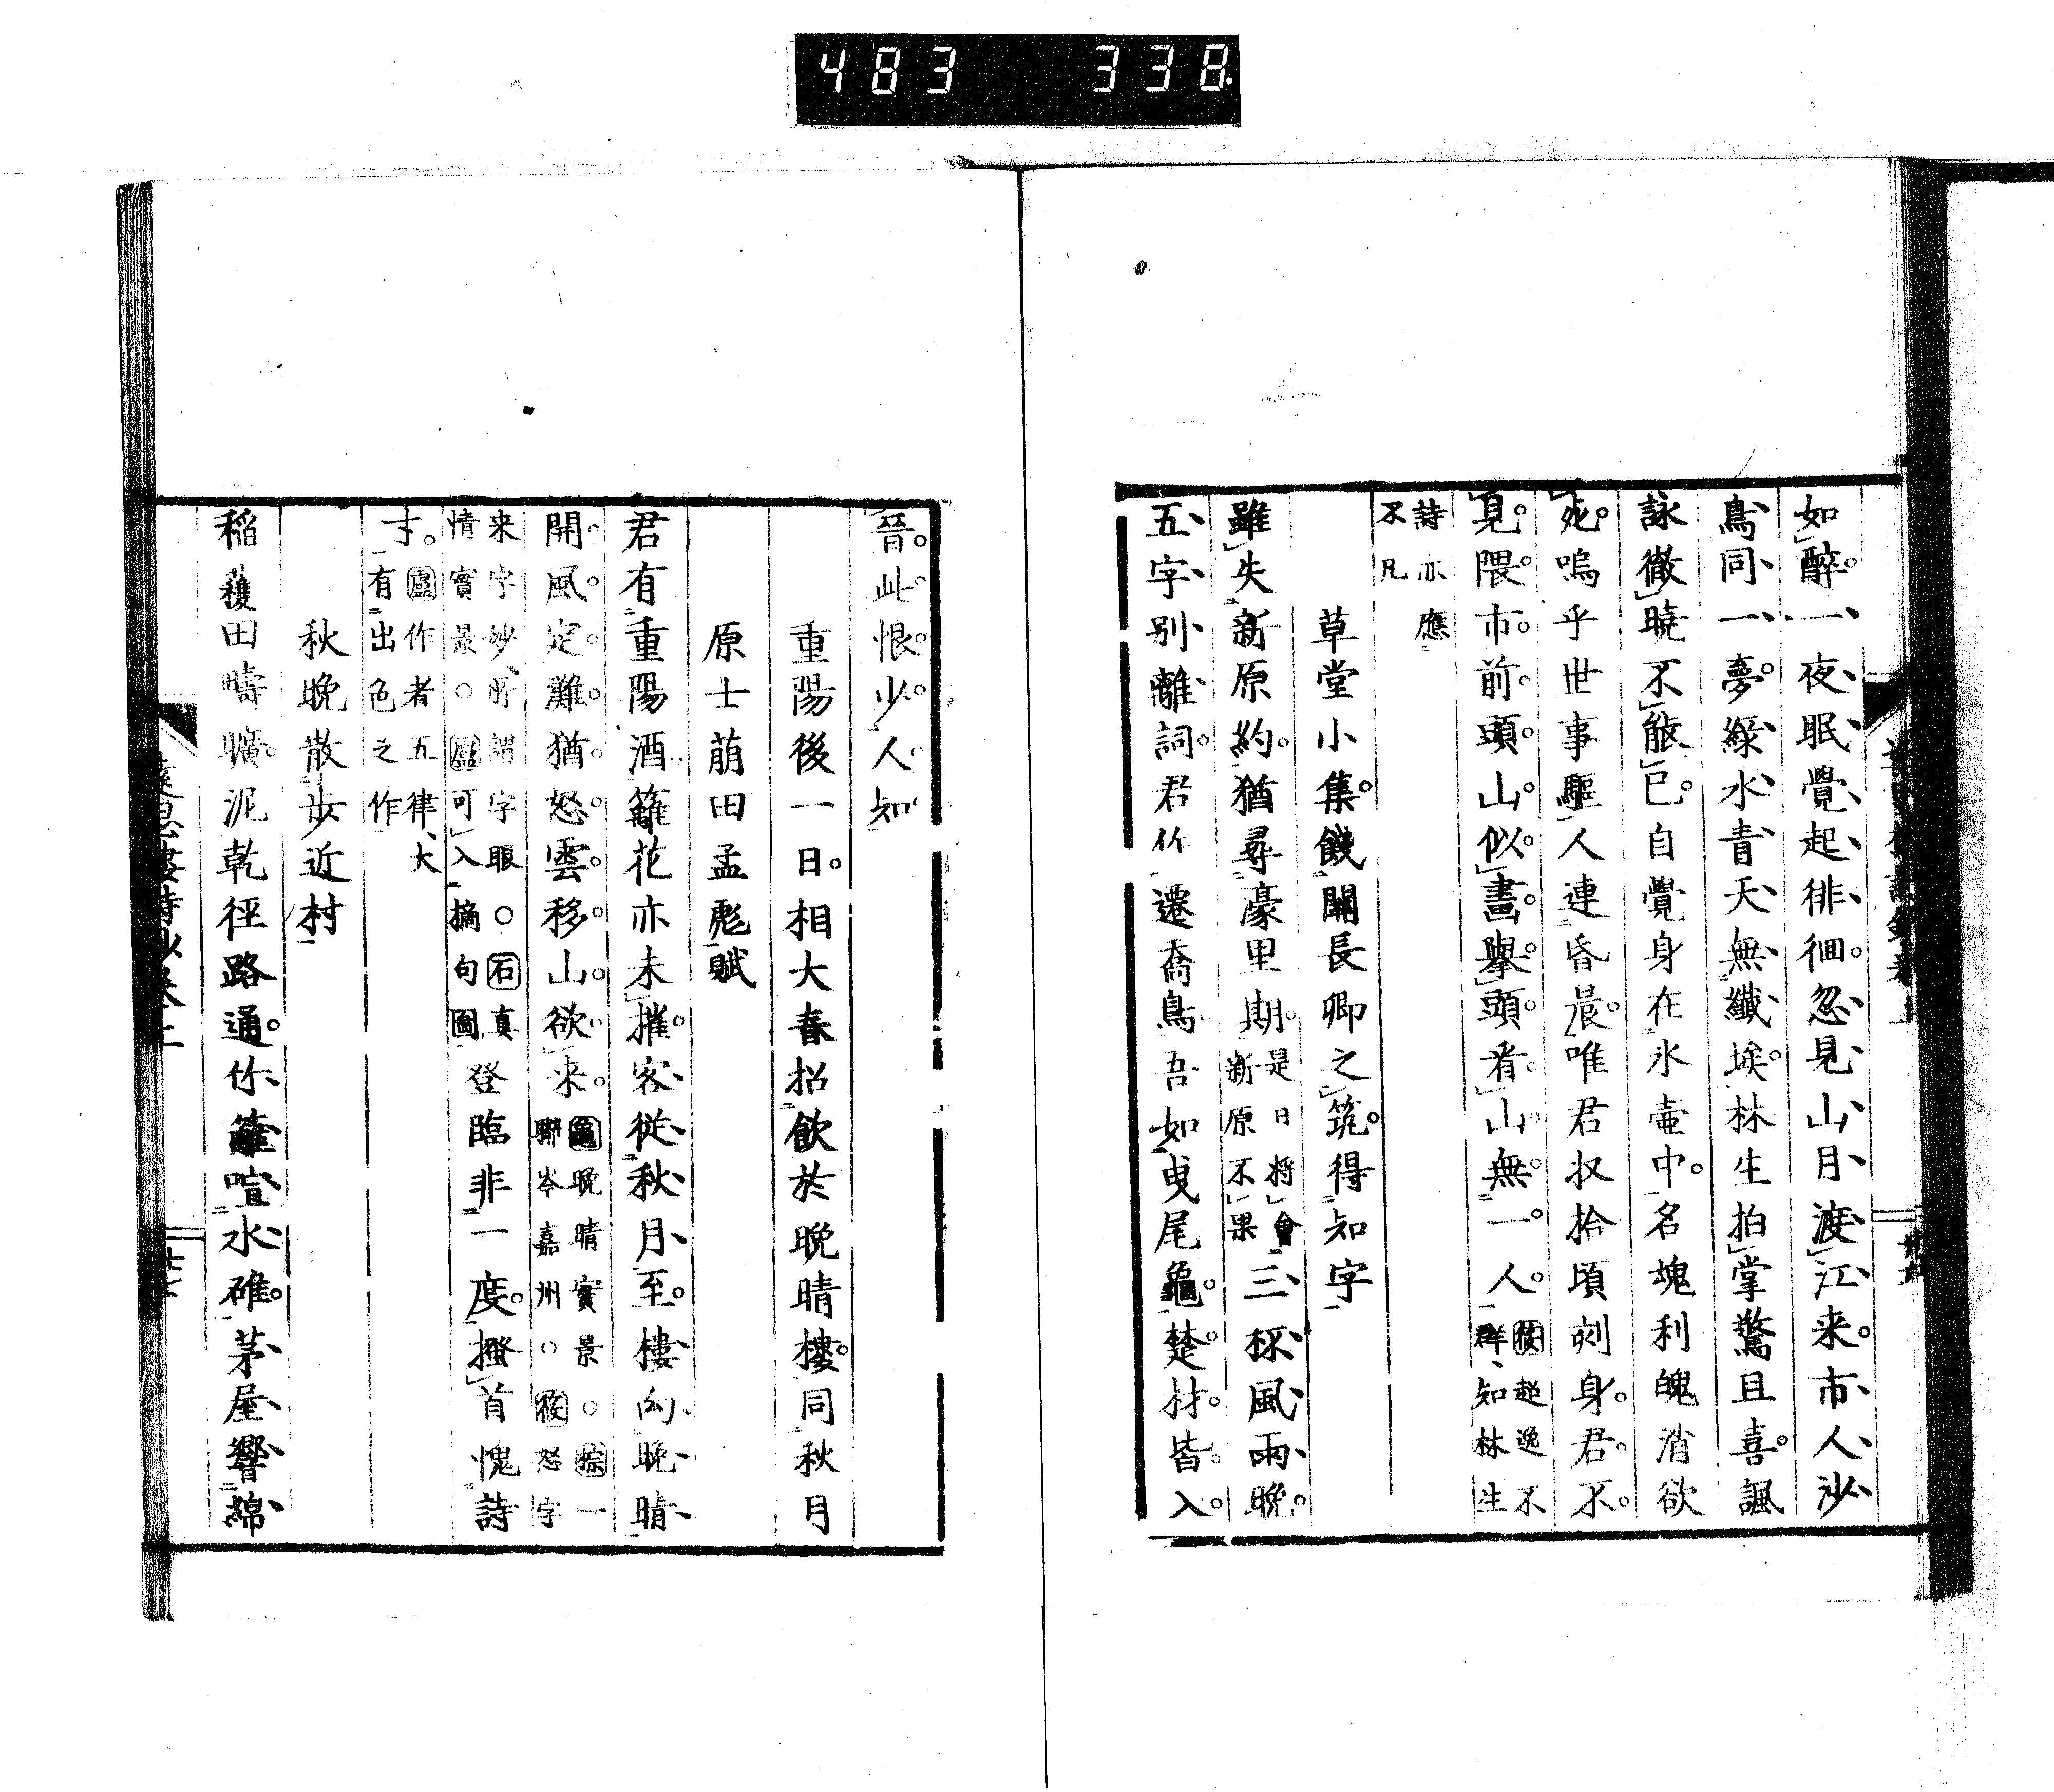 483 338
如醉。一夜眠覺起徘徊。忽見山月渡江来。市人沙
鳥同一夢。綠水青天無纖埃。林生拍掌驚且喜。諷
詠徹曉不能已。自覺身在氷壷中。名塊利魄消欲
死。嗚乎世事驅人連昏晨。唯君収拾頃刻身。君不
見。隈市前頭山似畫。擧頭看山無一人。猴超逸不群、知林生
詩亦應不凡
草堂小集。餞關長卿之筑。得知字
雖失新原約。猶尋濠里期。是日将會新原不果三杯風雨晩。
五字別離詞。君作遷喬鳥。吾如曳尾龜。楚材皆入
晉。此恨少人知
重陽後一日。相大春招飲於晩晴樓。同秋月
原士萠田孟彪賦
君有重陽酒。籬花亦未摧。客從秋月至。樓向晩晴
開。風定灘猶怒。雲移山欲来。龜晩晴實景。○猴一聯岑嘉州○猴怒字
来字妙、所謂字眼○石真情實景○盧可入摘句圖登臨非一度。搔首愧詩
才。盧作者五律、大有出色之作
秋晩散歩近村
稲穫田疇曠。泥乾徑路通。竹籬喧水碓。茅屋響綿